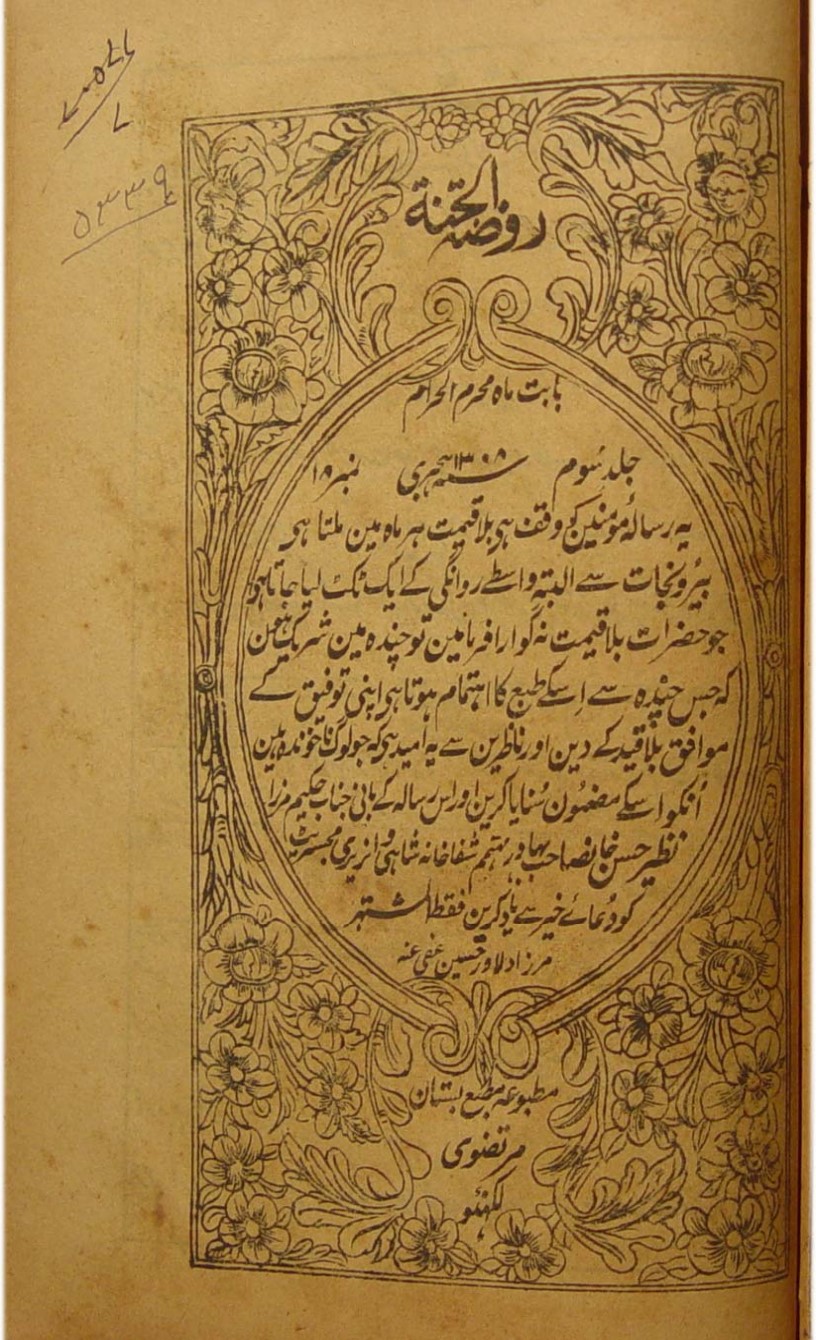 روضۃ الجنۃ
بابت ماہ محرم الحرام
جلد سوم سنہ ۱۳۰۸ ہجری نمبر ۱۸
یہ رسالہ مومنین کو وقف ہی بلا قیمت ہر ماہ مین ملتا ہی
بیرونجات سے البتہ واسطے روانگی کے ایک ٹکٹ لیا جاتا ہی
جو حضرات بلا قیمت نہ گوارا فرمائین تو چندہ مین شریک ہون
کہ جس چندہ سے اسکے طبع کا اہتمام ہوتا ہی اپنی توفیق کے
موافق بلا قید کے دین اور ناظرین سے یہ امید ہی کہ جو لوگ ناخواندہ ہین
اُنکو اسکے مضمُون سُنایا کرین اور اس رسالہ کے بانی جناب حکیم مرزا
نظیر حسن خانصاحب بہادر مہتمم شفاخانہ شاہی و انریری مجسٹریٹ
کو دُعائے خیر سے یاد کرین فقط المشتہر
مرزا دلاور حسین عفی عنہ
مطبوعہ مطبع بستان
مرتضوی
لکھنؤ
۵۳۳۹